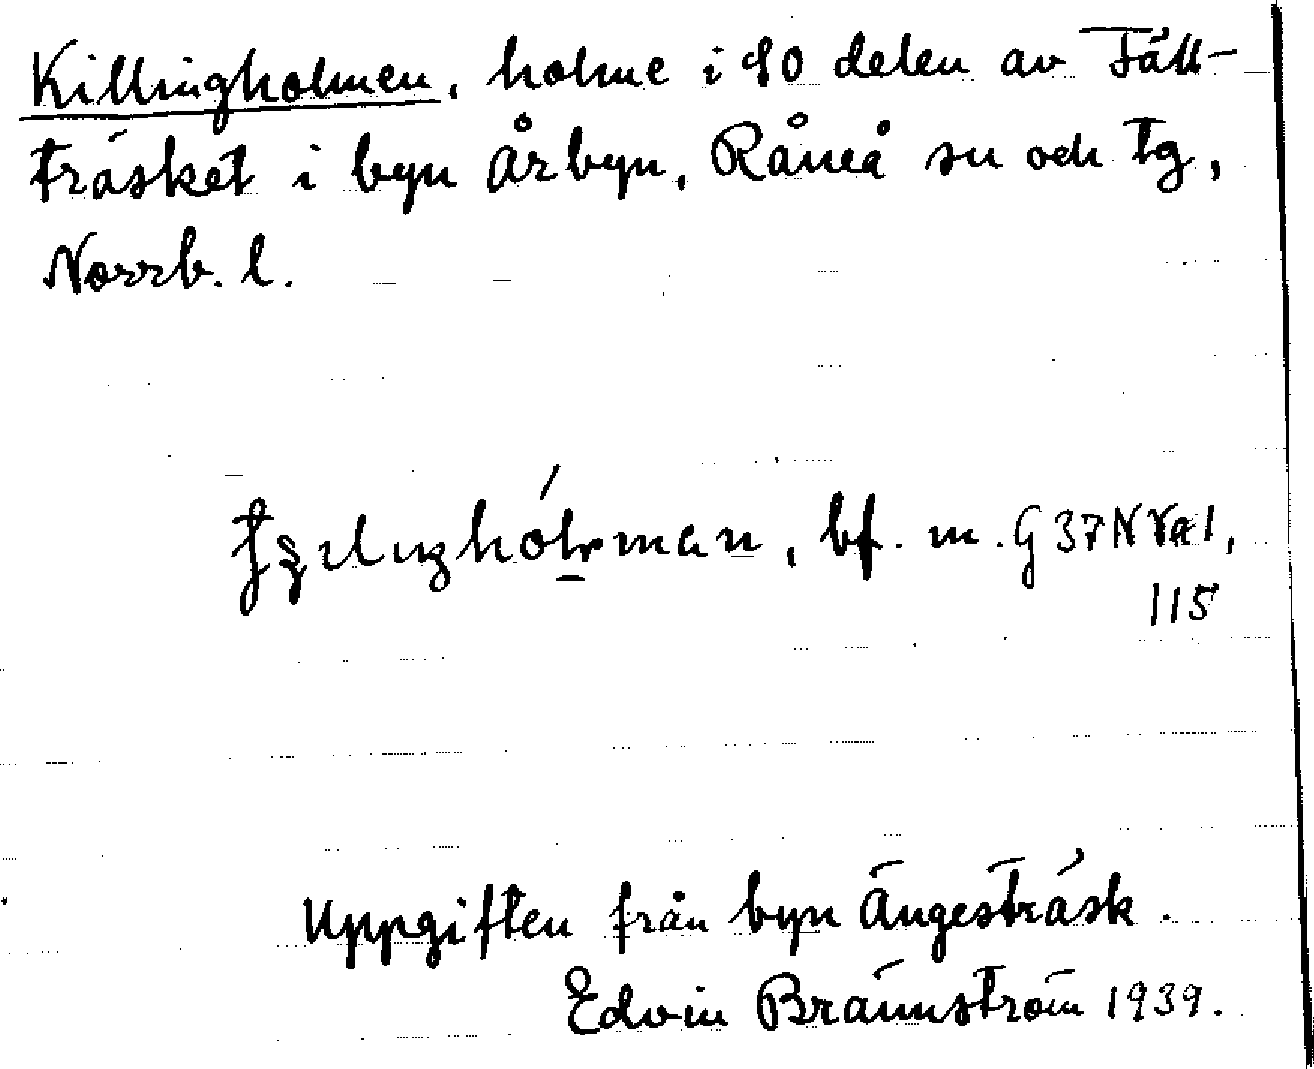 Killingholmen, holme i SO delen av Fäll-
träsket i byn Årbyn, Råneå sn och tg,
Norrb. l.
bf. m. G 37 N
115
Uppgiften från byn Ängesträsk.
Edvin Brännström 1939.